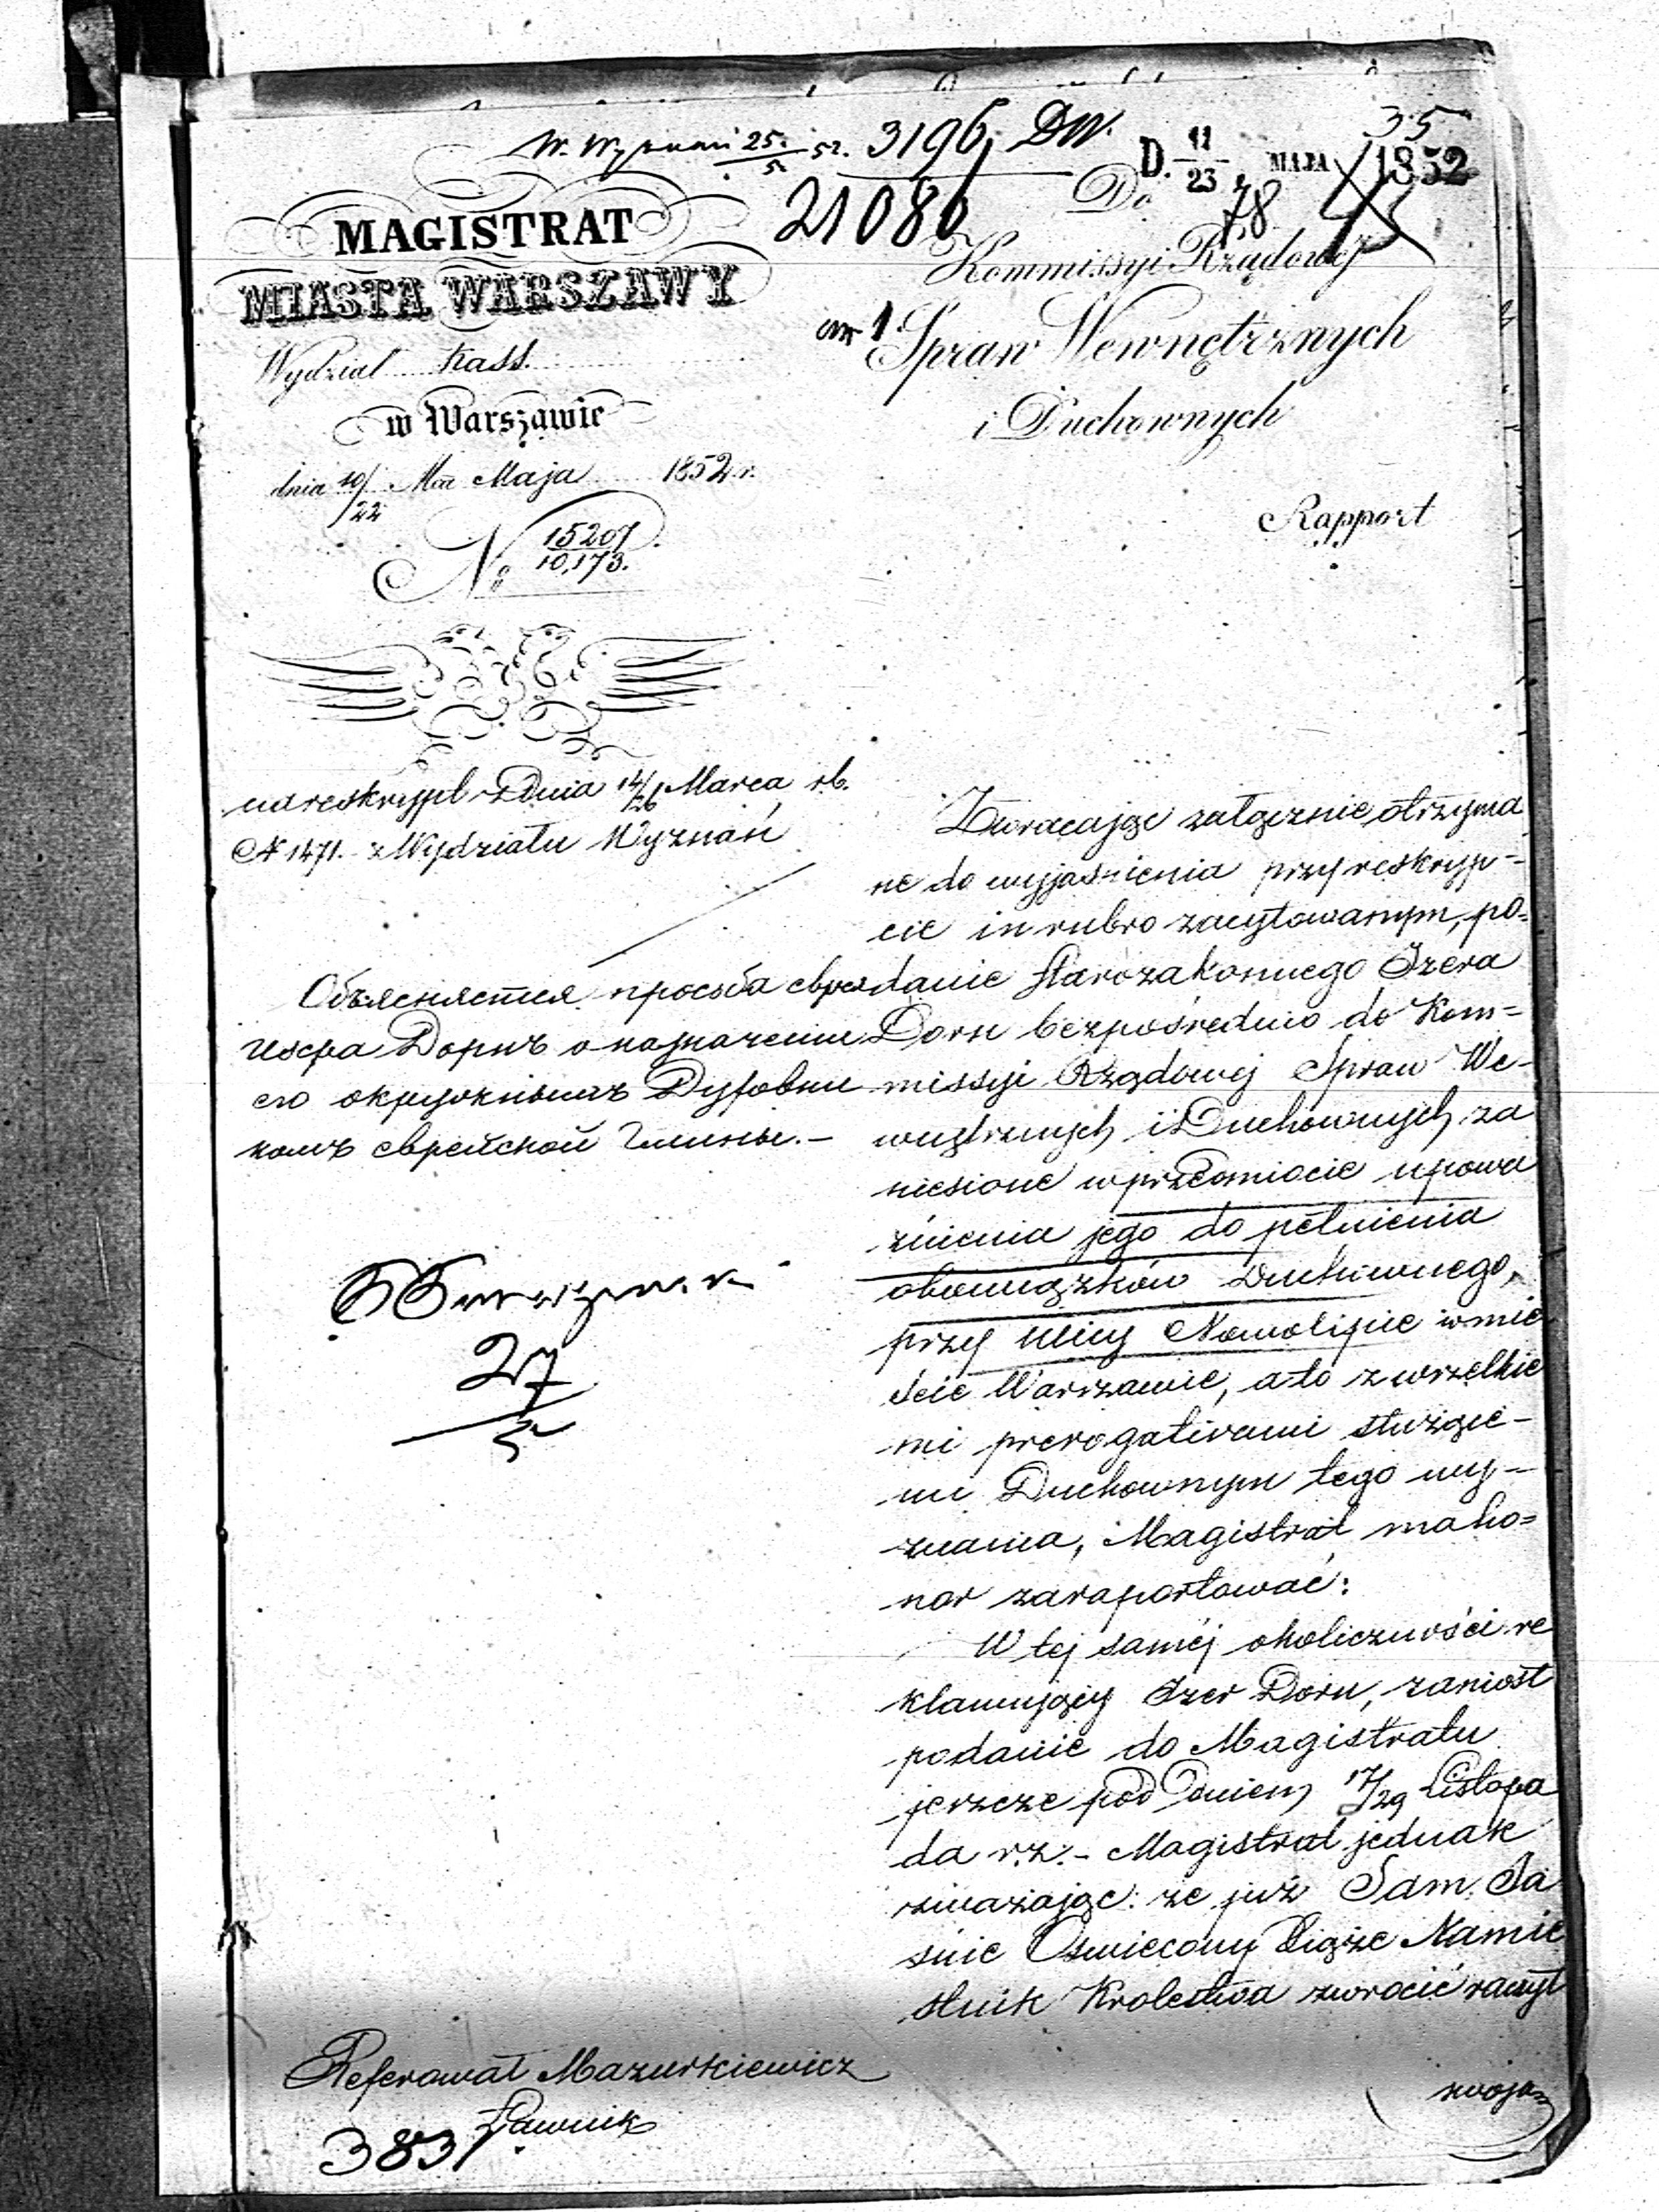 W. Wyznań 25/5 52. 3196 DW.
35
D. 11/23 MAJA 1852
21086
78
Do
MAGISTRAT
MIASTA WARSZAWY
Kommissyi Rządowéj
Spraw Wewnętrznych
i Duchownych
Wydział Kass.
w Warszawie
dnia 10/22 Mca Maja 1852 r.
Rapport
No 15207
10,173.
na reskrypt z Dnia 14/26 Marca r.b.
N 1471. z Wydziału Wyznań
Объясняется просьба евре
Исера Дорнъ о назначении
его окружнымъ Духовни
комъ еврейской Гмины.-
27
5
Zwracając załącznie otrzyma
ne do wyjaśnienia przy reskryp-
cie in rubro zacytowanym, po=
danie Starozakonnego Izera
Dorn bezpośrednio do Kom=
missyi Rządowej Spraw We-
wnętrznych i Duchownych za
niesione w przedmiocie upowa
żnienia jego do pełnienia
obowiązków Duchownego,
przy ulicy Nowolipie w mie
ście Warszawie, a to z wszelkie
mi prerogatiwami służące-
mi Duchownym tego wy-
znania, Magistrat ma ho=
nor zaraportować:
W tej saméj okoliczności re
klamujący Izer Dorn, zaniosł
podanie do Magistratu
jeszcze pod Dniem 17/29 Listopa
da r.z. - Magistrat jednak
zważając: że już Sam Ja
śnie Oswiecony Xiąże Namie
stnik Krolestwa zwrocić raczył
swoją
Referował Mazurkiewicz
Ławnik
383